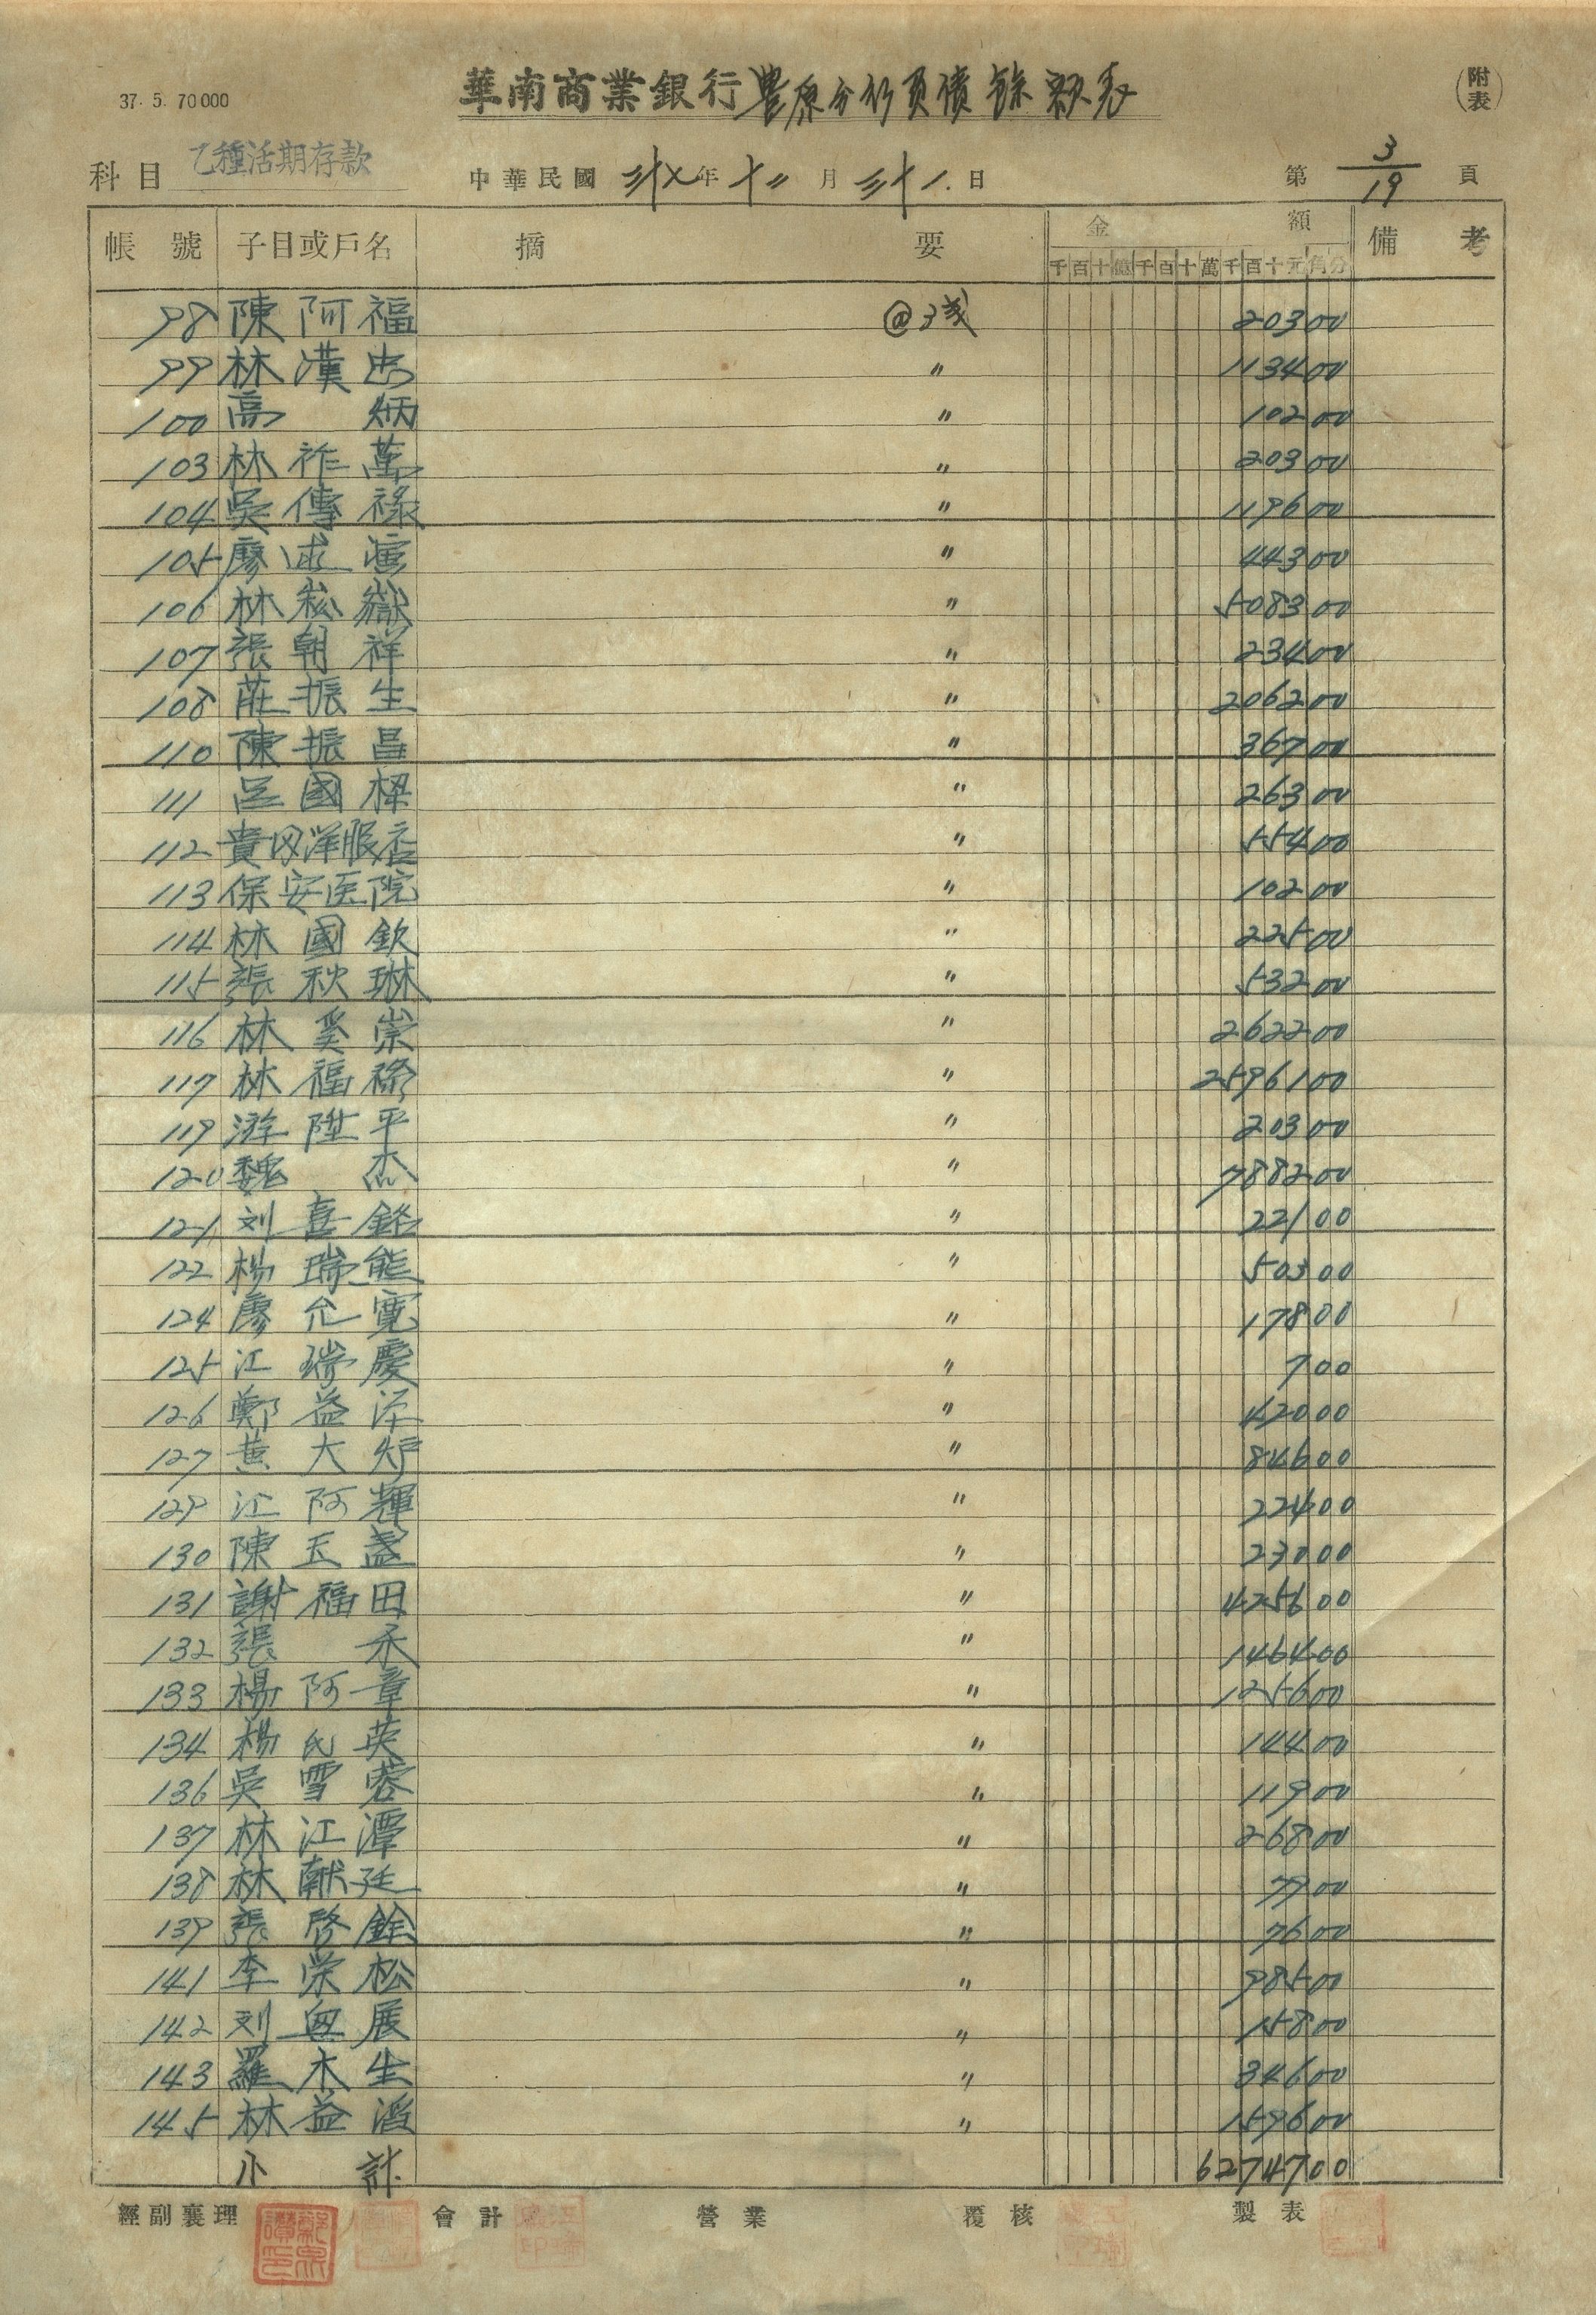 37. 5. 70000
華南商業銀行豐原分行負債餘額表
（附表）
科目 乙種活期存款 中華民國 卅七年 十二月 卅一日 第 3/19 頁
帳號 子目或戶名 摘要 金額 備考
千百十億千百十萬千百十元角分
98 陳阿福 @3戔 20300
99 林漢忠 〃 113400
100 高炳 〃 10200
103 林祚萬 〃 20300
104 吳傳祿 〃 119600
105 廖述 〃 44300
106 林崧嶽 〃 508300
107 張朝祥 〃 23400
108 莊振生 〃 206200
110 陳振昌 〃 36700
111 呂國樑 〃 26300
112 貴囡洋服店 〃 55400
113 保安医院 〃 10200
114 林國欽 〃 22500
115 張秋琳 〃 53200
116 林奚崇 〃 262200
117 林福祿 〃 2596100
119 游陞平 〃 20300
120 魏杰 〃 788200
121 刘喜銘 〃 22100
122 楊瑞熊 〃 50300
124 廖允寬 〃 17800
125 江瑞慶 〃 700
126 鄭益 〃 62000
127 黃大炉 〃 84600
129 江阿輝 〃 22400
130 陳玉盞 〃 23000
131 謝福田 〃 425600
132 張禾 〃 146400
133 楊阿章 〃 125600
134 楊氏英 〃 14400
136 吳雪蓉 〃 11900
137 林江潭 〃 26800
138 林献廷 〃 7900
139 張啓銓 〃 7600
141 李荣松 〃 98500
142 刘展 〃 15800
143 羅木生 〃 34600
145 林益滔 〃 159600
小計 6274700
經副襄理 會計 營業 覆核 製表